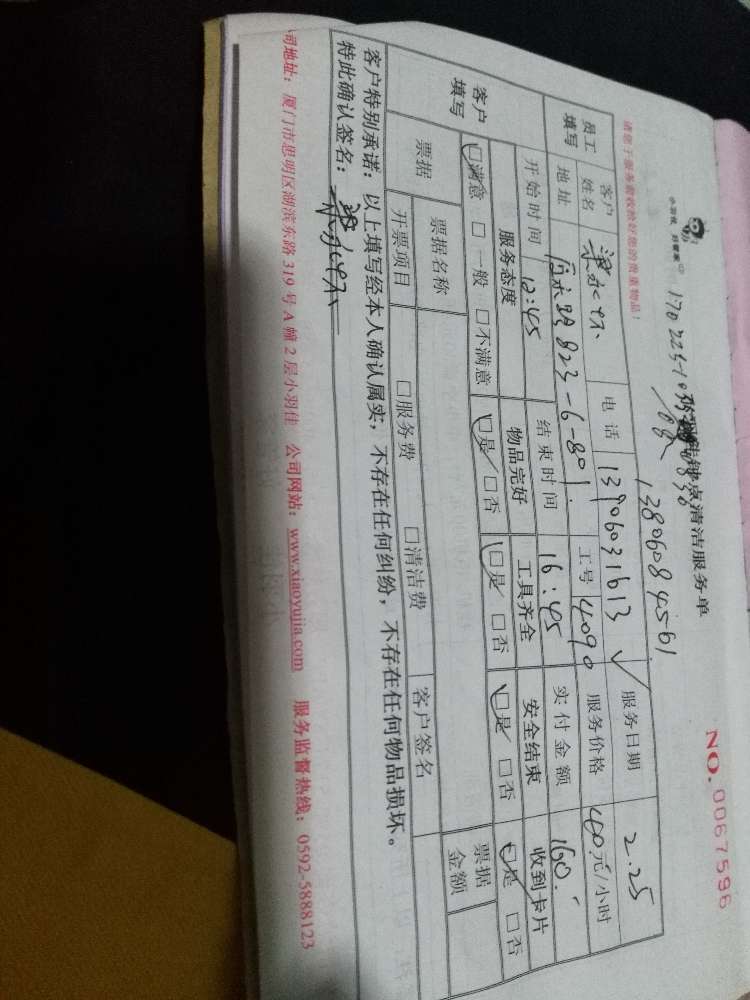 NO. 0067596
钟点清洁服务单
13806084561
请您于服务前收捡好您的贵重物品！
员工填写 客户姓名 电话 13906031613 服务日期 2.25
地址 823-6-801. 工号 4090 服务价格 40元/小时
开始时间 12:45 结束时间 16:45 实付金额 160.
客户填写 服务态度 物品完好 工具齐全 安全结束 收到卡片
☑满意 □一般 □不满意 ☑是 □否 ☑是 □否 ☑是 □否 ☑是 □否
票据 票据名称 客户签名 票据金额
开票项目 □服务费 □清洁费
客户特别承诺：以上填写经本人确认属实，不存在任何纠纷，不存在任何物品损坏。
特此确认签名：
司地址：厦门市思明区湖滨东路 319 号 A 幢 2 层小羽佳 公司网站：www.xiaoyujia.com 服务监督热线：0592-5888123